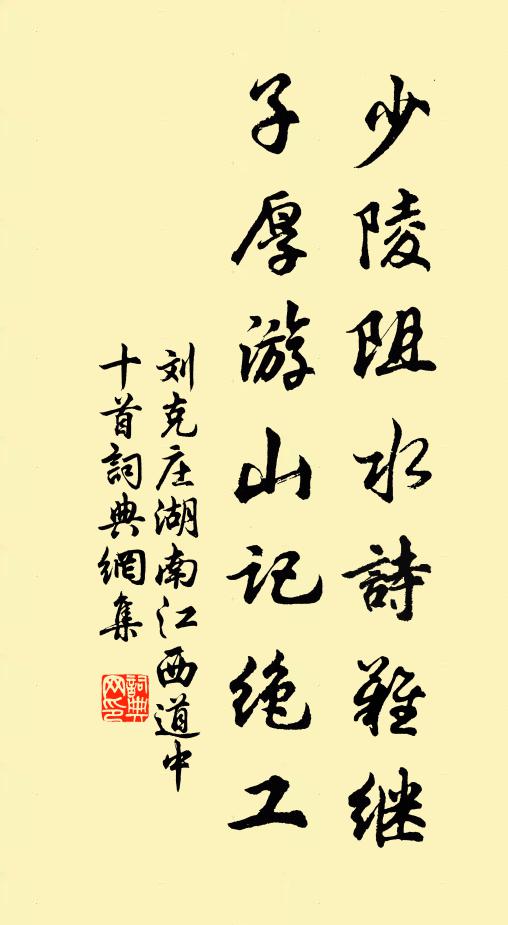 少陵阻水詩難继
子厚游山记绝工
刘克庄湖南江西道中
十首詞典網集
詞典网印